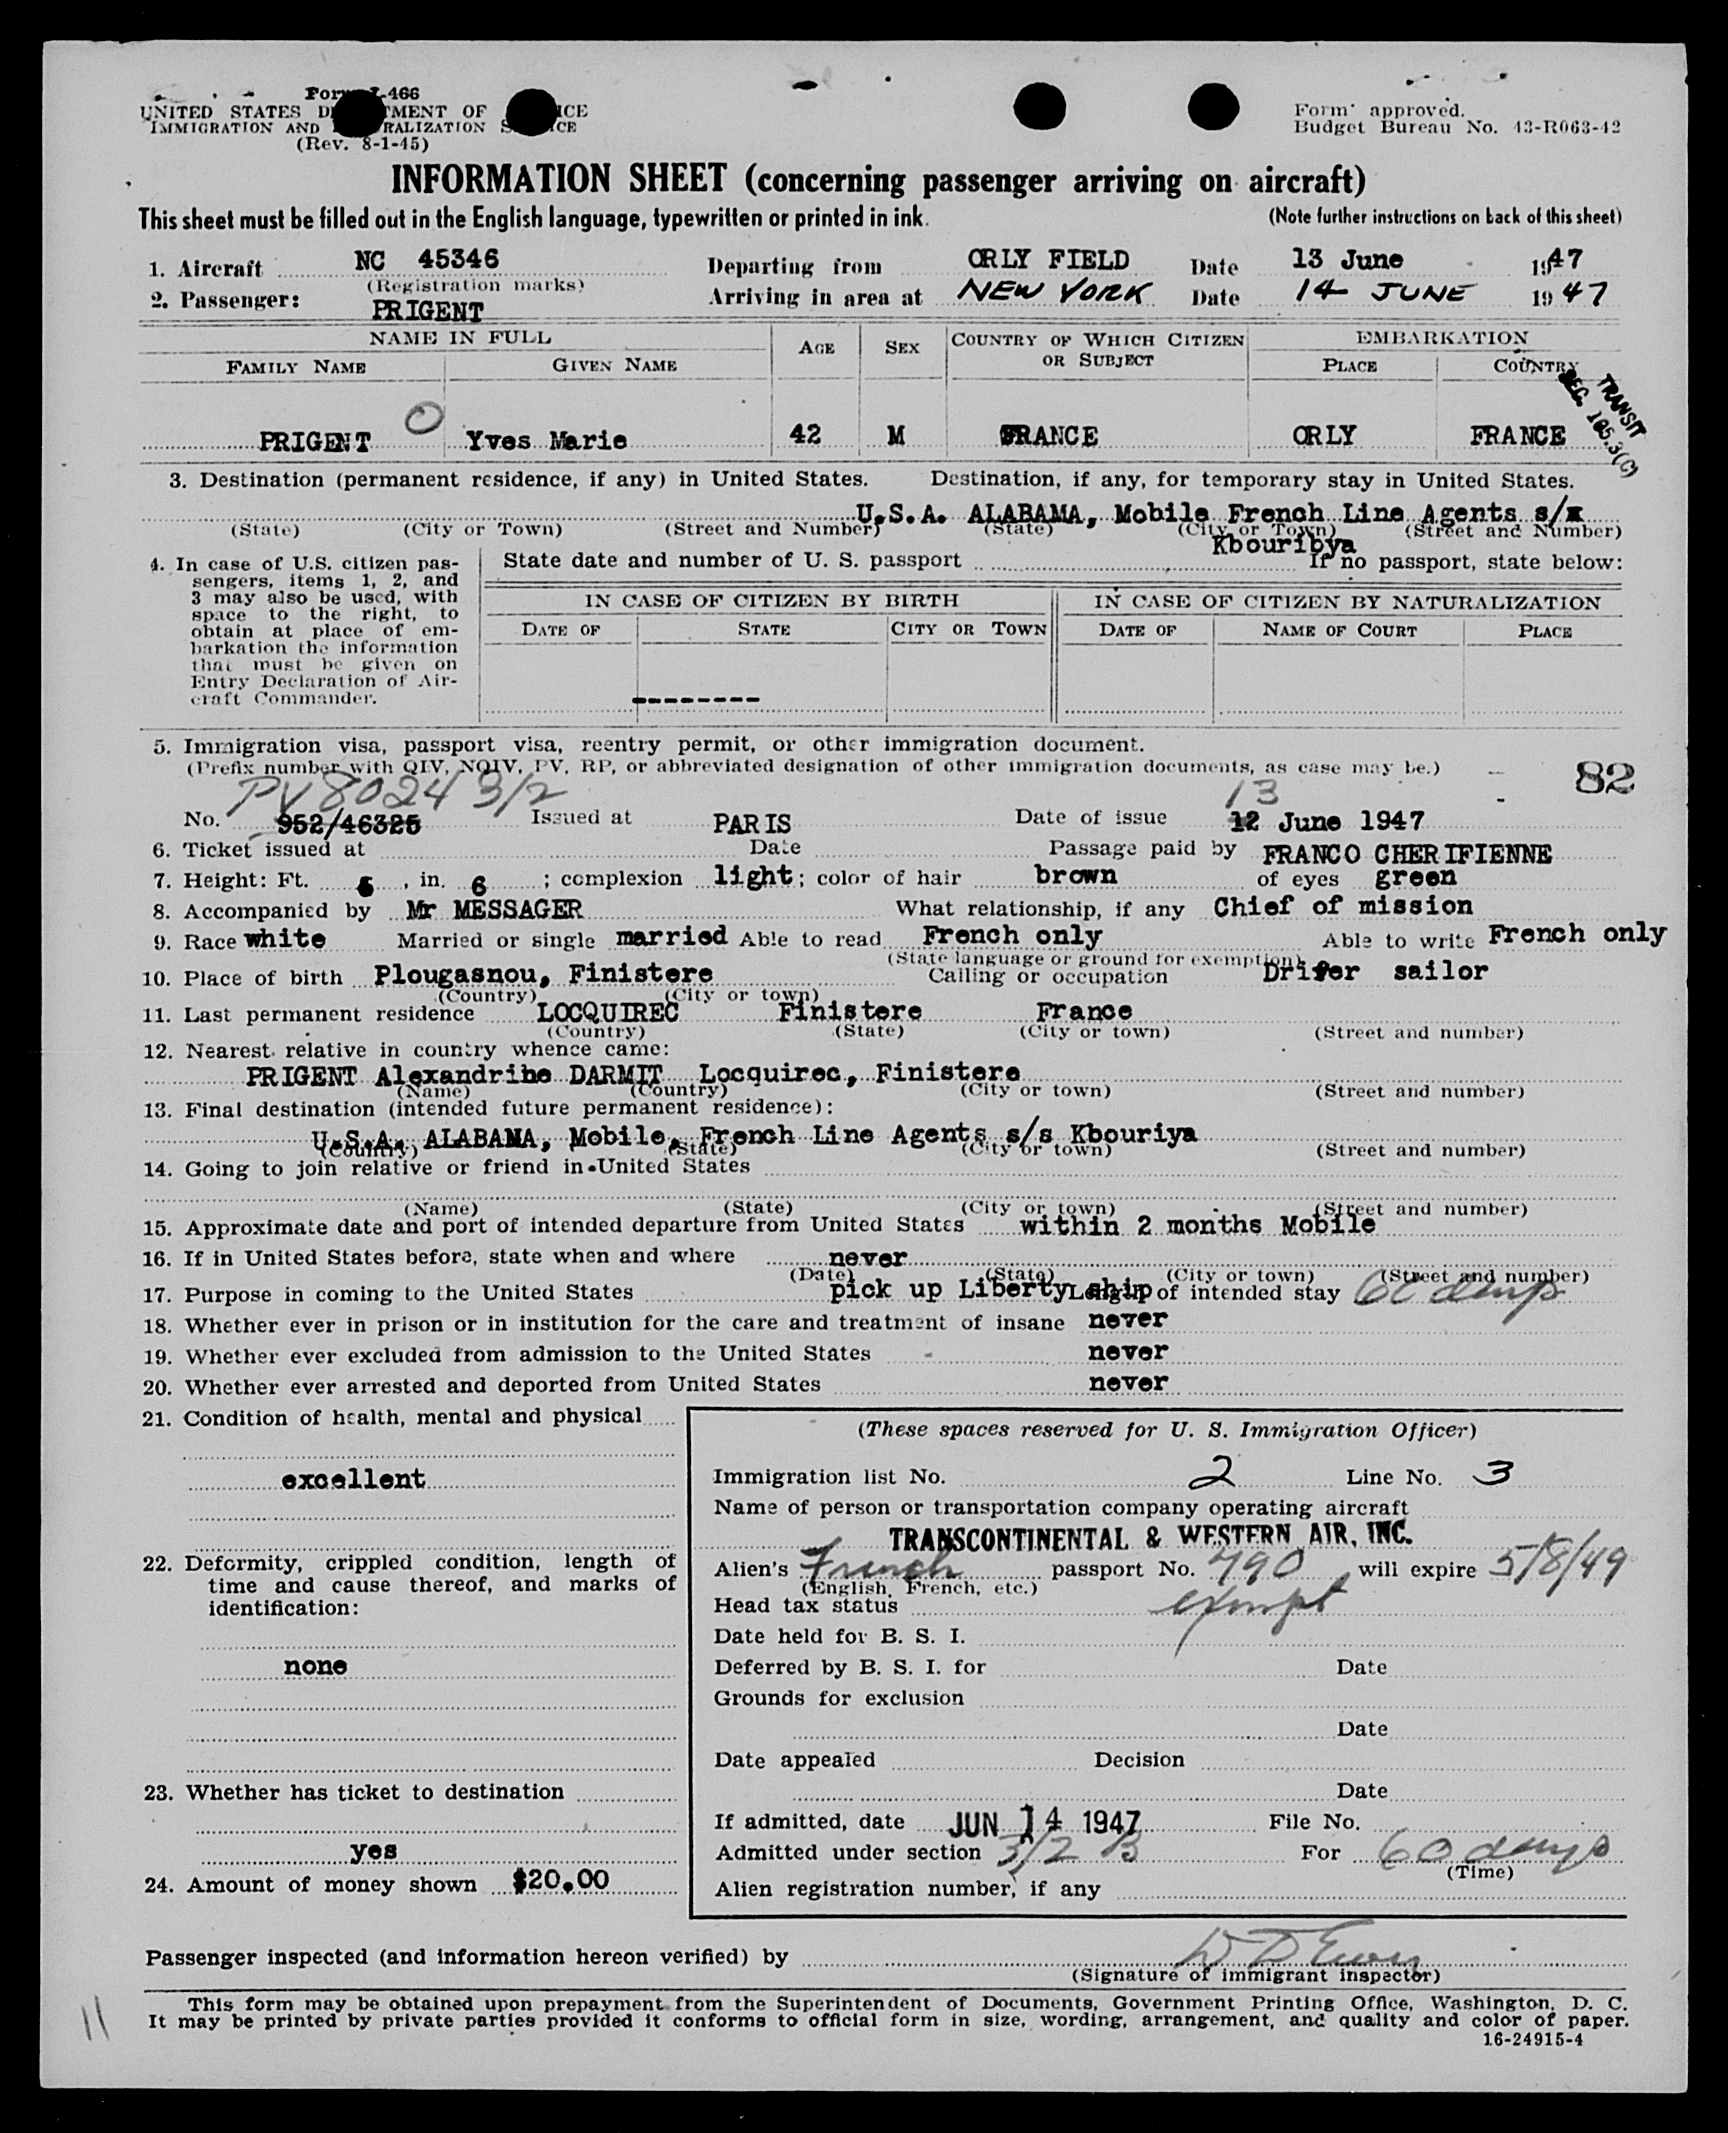 Form I-466
UNITED STATES DEPARTMENT OF JUSTICE
IMMIGRATION AND NATURALIZATION SERVICE
(Rev. 8-1-45)
Form approved.
Budget Bureau No. 43-R063-42
INFORMATION SHEET (concerning passenger arriving on aircraft)
This sheet must be filled out in the English language, typewritten or printed in ink.
(Note further instructions on back of this sheet)
1. Aircraft NC 45346 Departing from ORLY FIELD Date 13 June 1947
(Registration marks)
2. Passenger: PRIGENT Arriving in area at NEW YORK Date 14 JUNE 1947
NAME IN FULL AGE SEX COUNTRY OF WHICH CITIZEN OR SUBJECT EMBARKATION
FAMILY NAME GIVEN NAME PLACE COUNTRY
TRANSIT
SEC. 165.3(C)
PRIGENT Yves Marie 42 M FRANCE ORLY FRANCE
3. Destination (permanent residence, if any) in United States. Destination, if any, for temporary stay in United States.
U.S.A. ALABAMA, Mobile French Line Agents s/x
(State) (City or Town) (Street and Number) (State) (City or Town) (Street and Number)
Kbouribya
4. In case of U.S. citizen passengers, items 1, 2, and 3 may also be used, with space to the right, to obtain at place of embarkation the information that must be given on Entry Declaration of Aircraft Commander.
State date and number of U. S. passport If no passport, state below:
IN CASE OF CITIZEN BY BIRTH IN CASE OF CITIZEN BY NATURALIZATION
DATE OF STATE CITY OR TOWN DATE OF NAME OF COURT PLACE
--------
5. Immigration visa, passport visa, reentry permit, or other immigration document.
(Prefix number with QIV, NQIV, PV, RP, or abbreviated designation of other immigration documents, as case may be.)
82
PV 80243/2 13
No. 952/46325 Issued at PARIS Date of issue 12 June 1947
6. Ticket issued at Date Passage paid by FRANCO CHERIFIENNE
7. Height: Ft. 5, in. 6; complexion light; color of hair brown of eyes green
8. Accompanied by Mr MESSAGER What relationship, if any Chief of mission
9. Race white Married or single married Able to read French only Able to write French only
(State language or ground for exemption)
10. Place of birth Plougasnou, Finistere Calling or occupation Drifer sailor
(Country) (City or town)
11. Last permanent residence LOCQUIREC Finistere France
(Country) (State) (City or town) (Street and number)
12. Nearest relative in country whence came:
PRIGENT Alexandrine DARMIT Locquirec, Finistere
(Name) (Country) (City or town) (Street and number)
13. Final destination (intended future permanent residence):
U.S.A. ALABAMA, Mobile, French Line Agents s/s Kbouriya
(Country) (State) (City or town) (Street and number)
14. Going to join relative or friend in United States
(Name) (State) (City or town) (Street and number)
15. Approximate date and port of intended departure from United States within 2 months Mobile
16. If in United States before, state when and where never
(Date) (State) (City or town) (Street and number)
17. Purpose in coming to the United States pick up Liberty ship Length of intended stay 60 days
18. Whether ever in prison or in institution for the care and treatment of insane never
19. Whether ever excluded from admission to the United States never
20. Whether ever arrested and deported from United States never
21. Condition of health, mental and physical
excellent
22. Deformity, crippled condition, length of time and cause thereof, and marks of identification:
none
23. Whether has ticket to destination
yes
24. Amount of money shown $20.00
(These spaces reserved for U. S. Immigration Officer)
Immigration list No. 2 Line No. 3
Name of person or transportation company operating aircraft
TRANSCONTINENTAL & WESTERN AIR, INC.
Alien's French passport No. 790 will expire 5/8/49
(English, French, etc.)
Head tax status exempt
Date held for B. S. I.
Deferred by B. S. I. for Date
Grounds for exclusion
Date
Date appealed Decision
Date
If admitted, date JUN 14 1947 File No.
Admitted under section 3/2 B For 60 days
(Time)
Alien registration number, if any
Passenger inspected (and information hereon verified) by
(Signature of immigrant inspector)
This form may be obtained upon prepayment from the Superintendent of Documents, Government Printing Office, Washington, D. C.
It may be printed by private parties provided it conforms to official form in size, wording, arrangement, and quality and color of paper.
16-24915-4
11